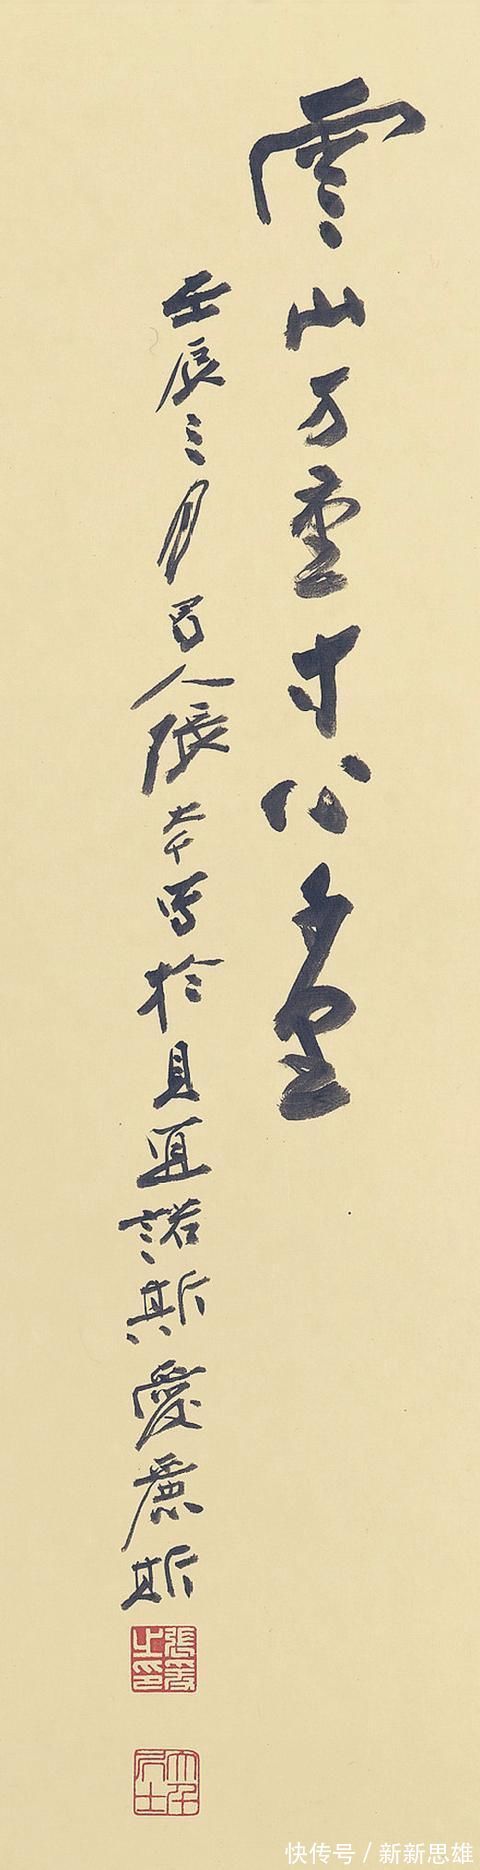 雲山万重寸心千里
壬辰三月蜀人張大千写於貝宜諾斯愛麗斯
張爰之印
大千居士
快传号 / 新新思雄